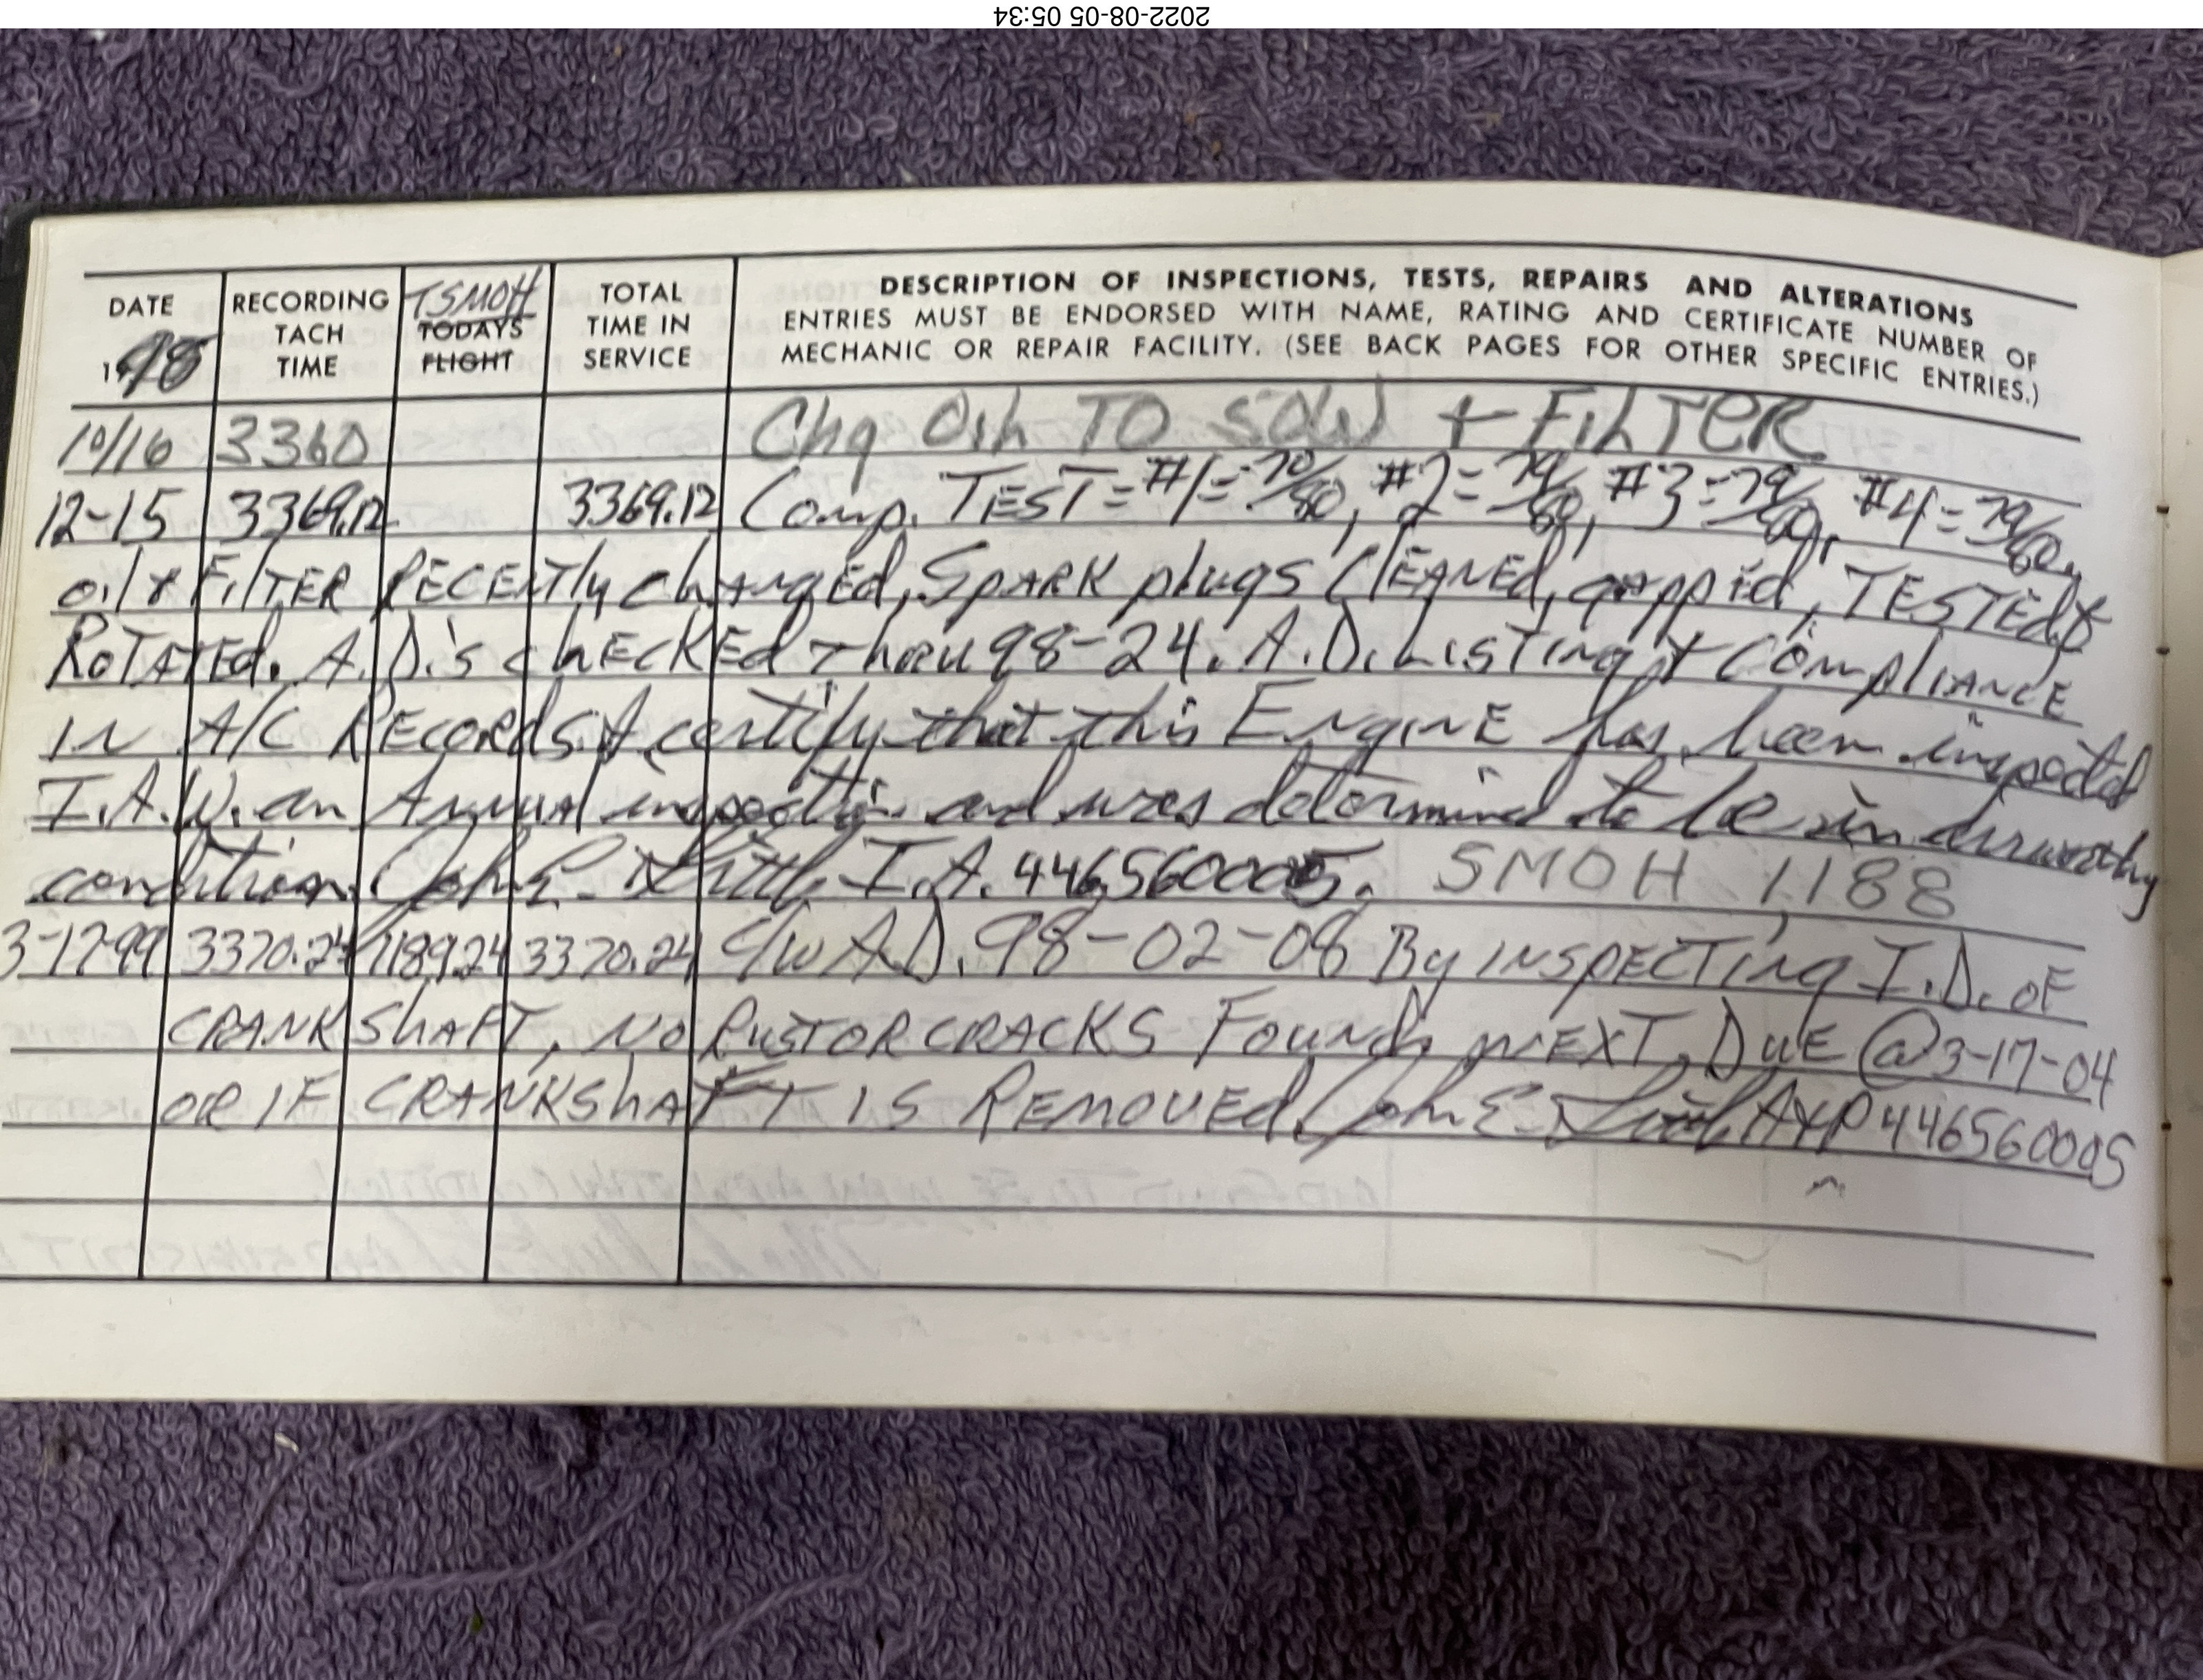 2022-08-05 05:34
DATE
1998
RECORDING
TACH
TIME
TSMOH
TODAYS
FLIGHT
TOTAL
TIME IN
SERVICE
DESCRIPTION OF INSPECTIONS, TESTS, REPAIRS AND ALTERATIONS
ENTRIES MUST BE ENDORSED WITH NAME, RATING AND CERTIFICATE NUMBER OF
MECHANIC OR REPAIR FACILITY. (SEE BACK PAGES FOR OTHER SPECIFIC ENTRIES.)
10/16 3360 Chg OiL TO 50W + FiLTER
12-15 3369.12 3369.12 Comp. TEST = #1 = 70/80, #2 = 79/80, #3 = 79/80, #4 = 79/80.
oil & FilTER RECENTly changed, SPARK plugs CLEANED, gappid, TESTEd &
ROTATEd. A.D.'s checkEd Thru 98-24. A.D. LisTing & CompliANCE
IN A/C RECORds. I certify that this EnginE has been inspected
I.A.W. an Annual inspection and was determined to be in airworthy
condition. John E. Little I.A. 446560005. SMOH 1188
3-17-99 3370.24 1189.24 3370.24 C/W A.D. 98-02-08 By INSPECTing I.D. OF
CRANKShAFT, NO RUST OR CRACKS Found, NEXT Due @ 3-17-04
OR IF CRANKShAFT IS REMOVEd. John E. Little A&P 446560005